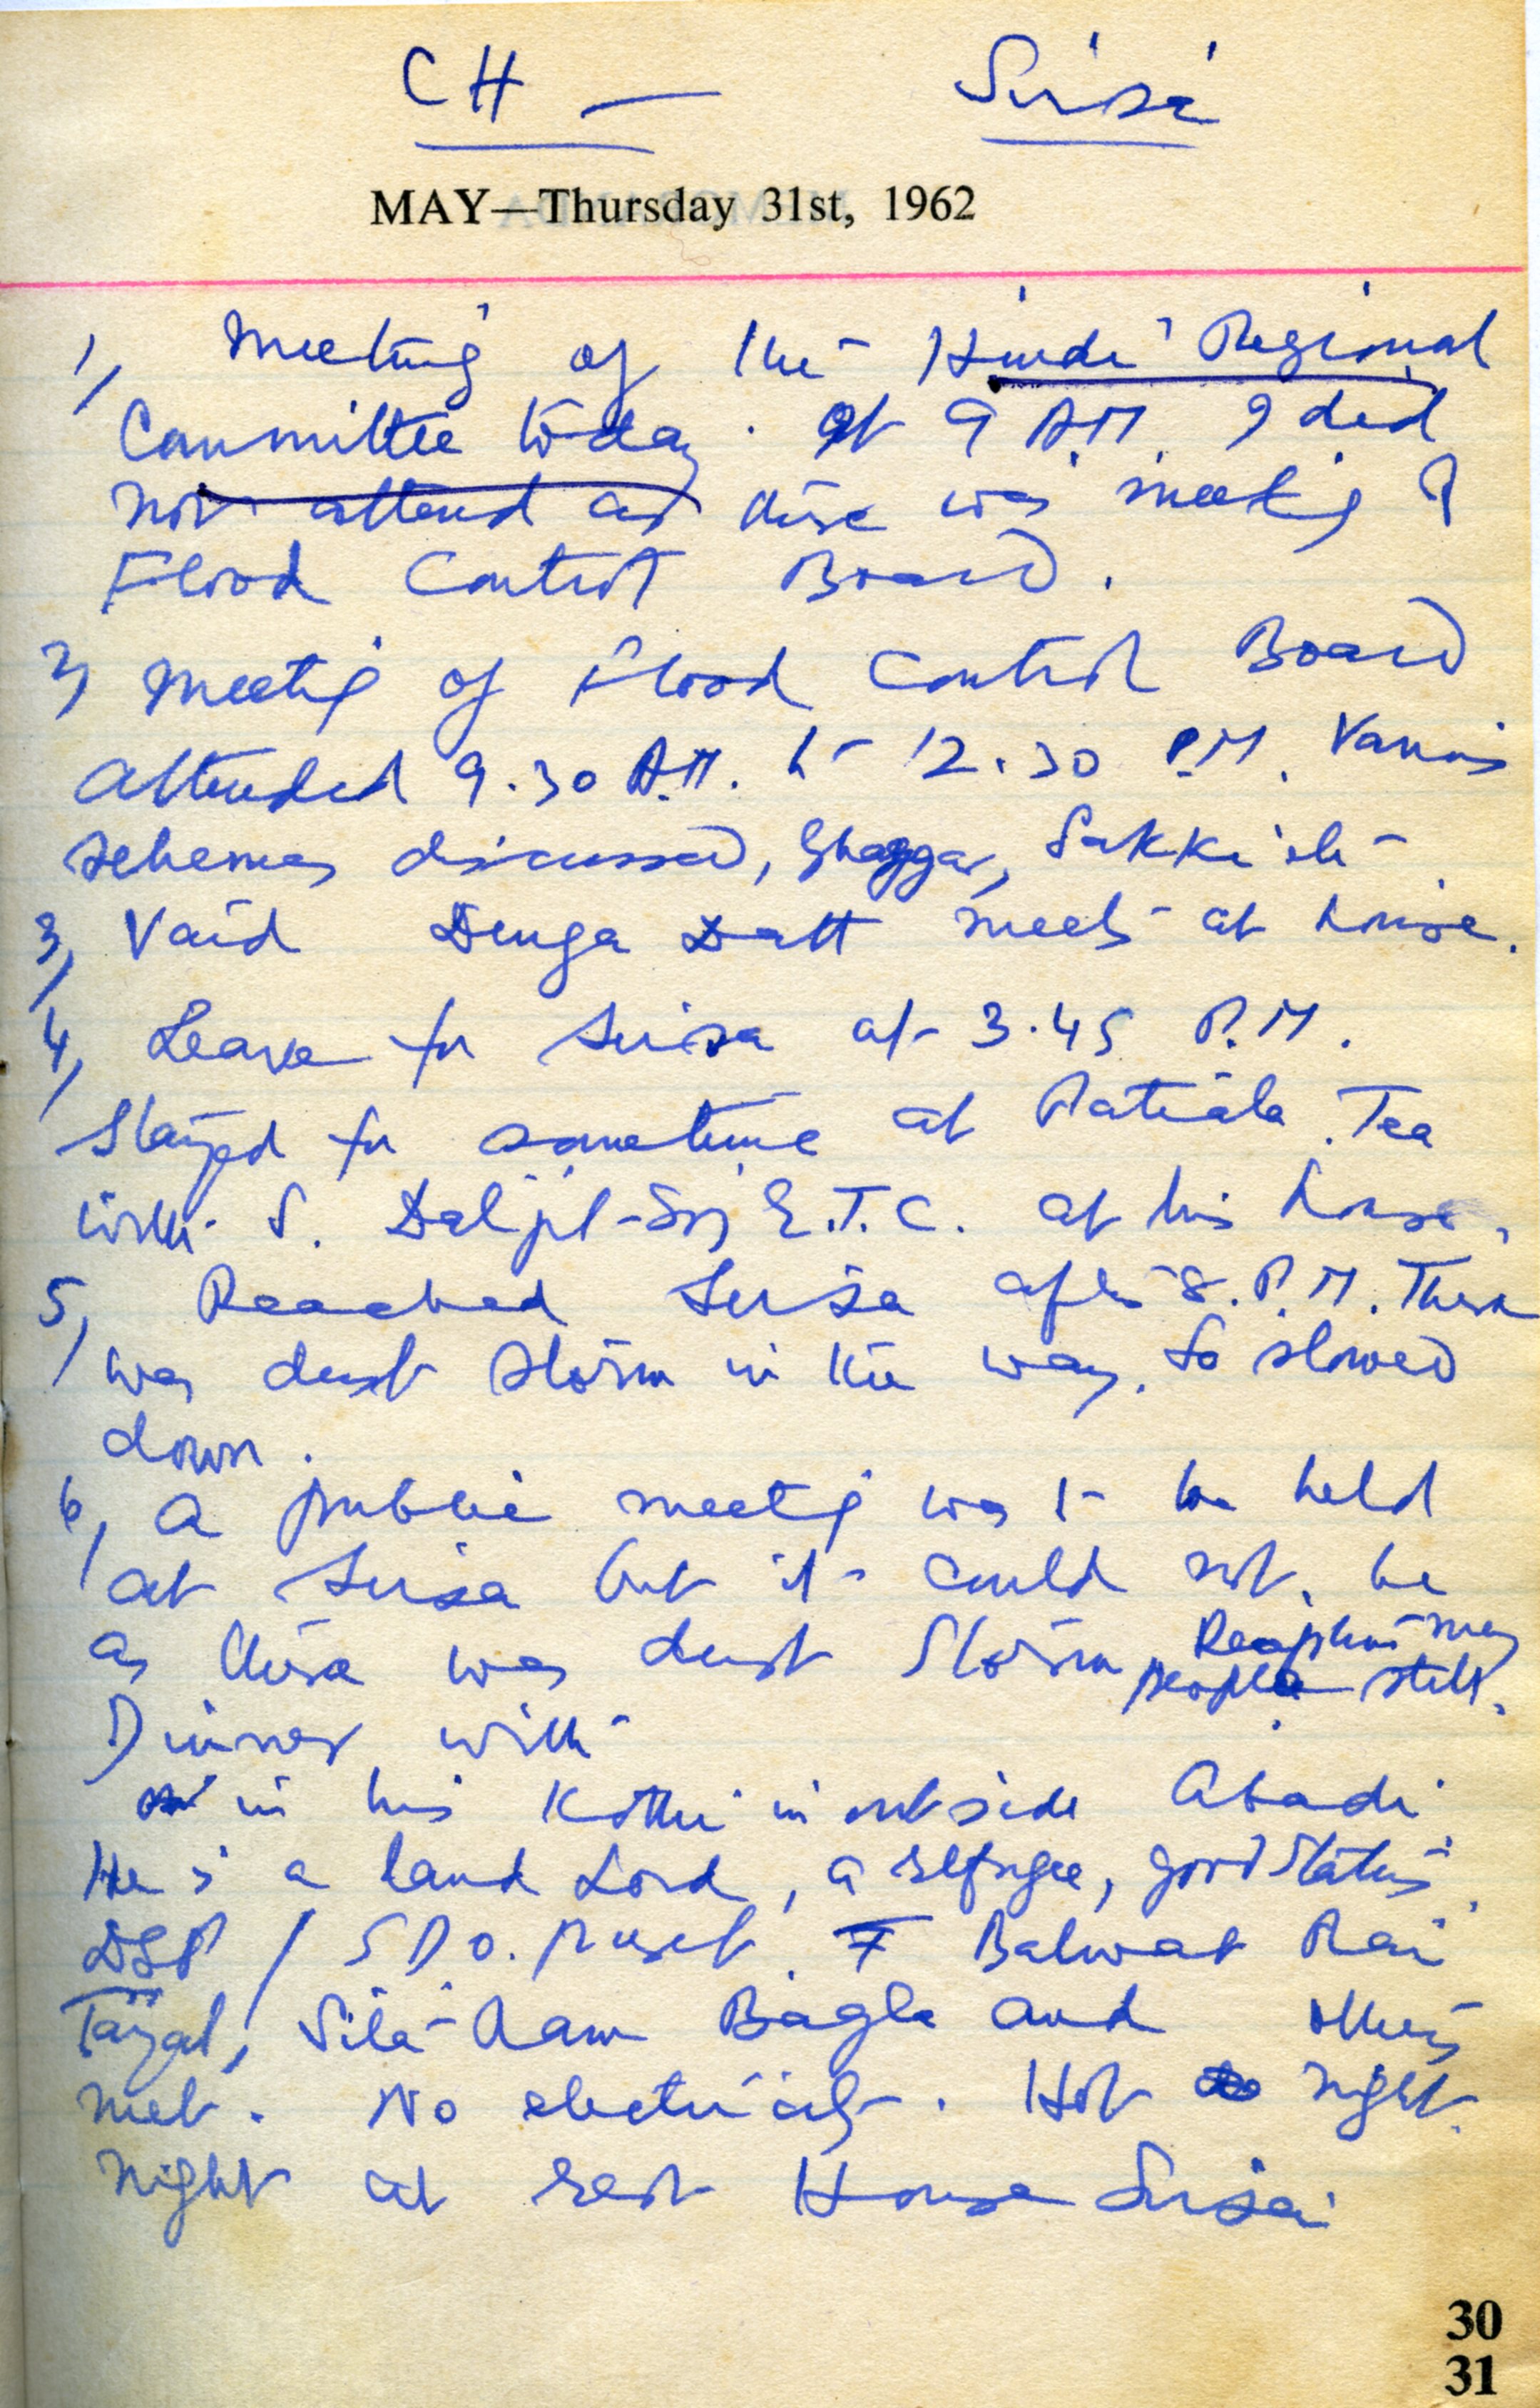 CH — Sirsa
MAY—Thursday 31st, 1962
1, Meeting of the Hindi Regional
Committee today. At 9 A.M. I did
not attend as there was meeting of
Flood Control Board.
2, Meeting of Flood Control Board
attended 9.30 A.M. to 12.30 P.M. Various
schemes discussed, Ghaggar, Sakki etc
3, Vaid Durga Datt meets at house.
4, Leave for Sirsa at 3.45 P.M.
Stayed for sometime at Patiala. Tea
with S. Daljit Sing E.T.C. at his house.
5, Reached Sirsa after 8. P.M. There
was dust storm in the way. So slowed
down.
6, A public meeting was to be held
at Sirsa but it could not be
as there was dust storm. many
people still.
Dinner with
in his Kothi in outside Abadi.
He is a land Lord, a refugee, good status.
DSP / SDO. present. Balwat Rai
Tayal, Sita Ram Bagla and others
met. No electricity. Hot night.
Night at rest House Sirsa
30
31